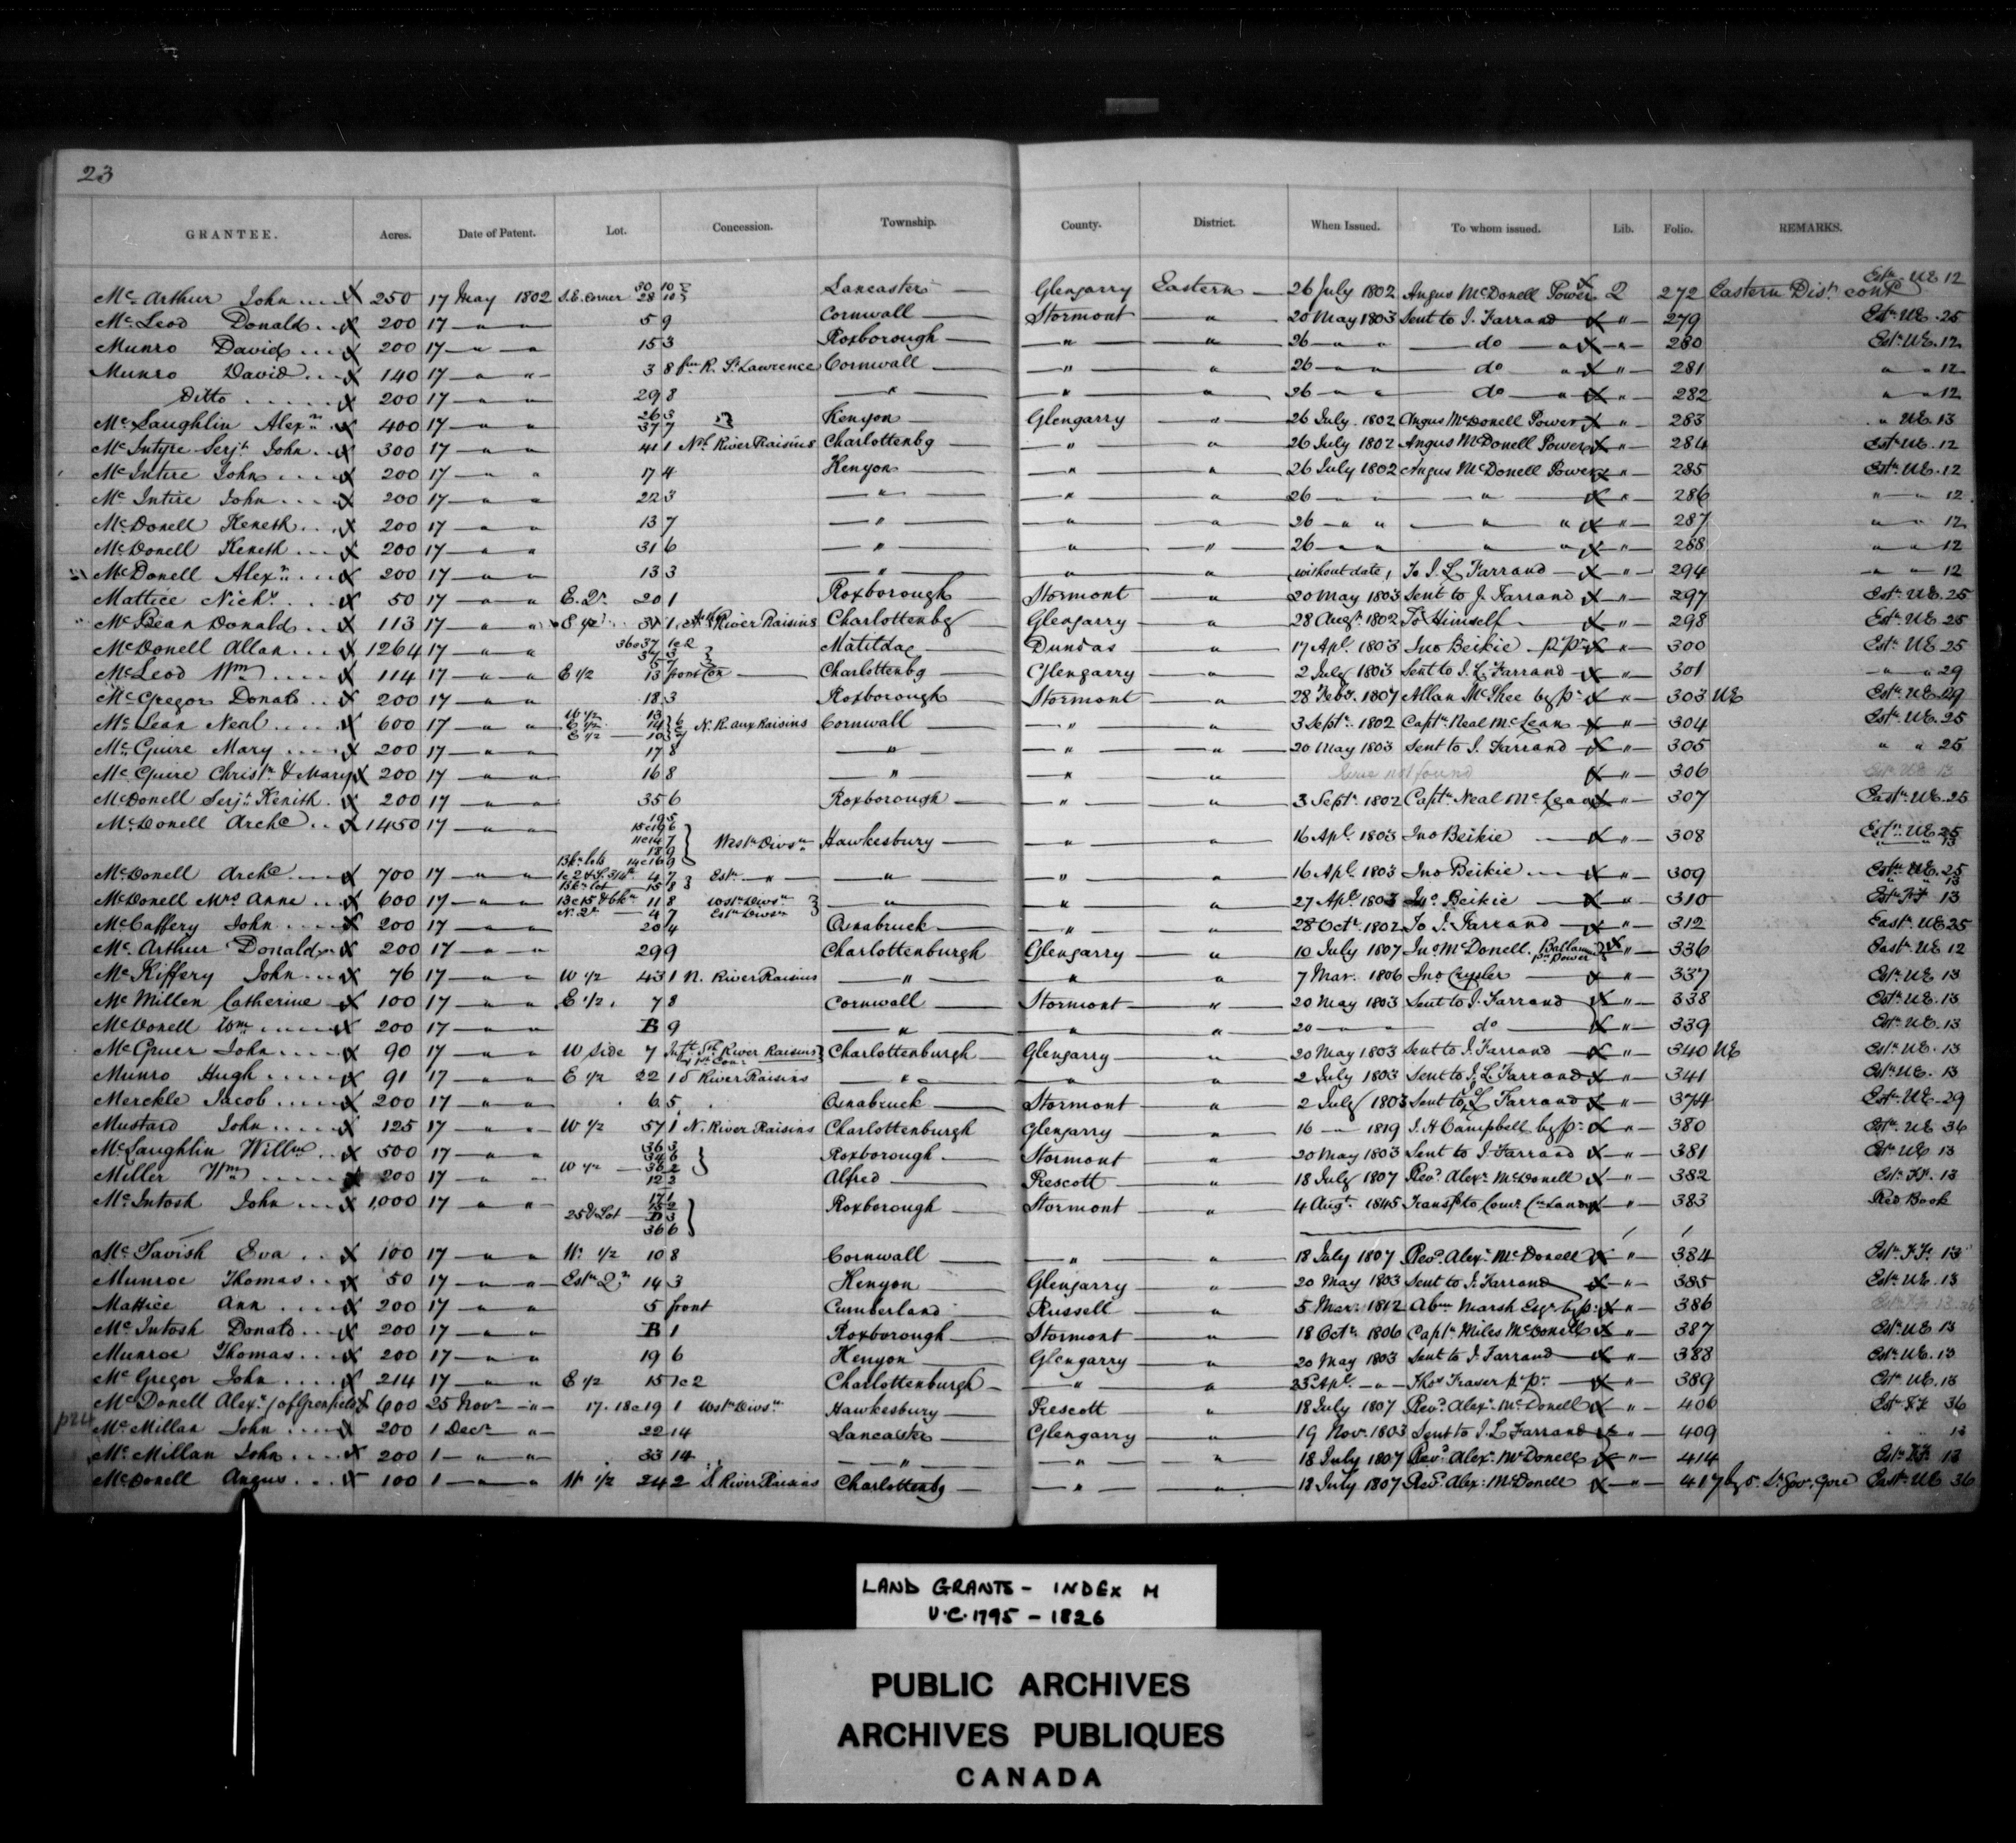 23
GRANTEE. Acres. Date of Patent. Lot. Concession. Township. County. District. When Issued. To whom issued. Lib. Folio. REMARKS.
McArthur John 250 17 May 1802 S.E. corner 30 10 28 10 Lancaster Glengarry Eastern 26 July 1802 Angus McDonell Power 2 272 Eastern Dist. cont'd Estn. UE 12
McLeod Donald 200 17 " " 5 9 Cornwall Stormont " 20 May 1803 Sent to J. Farrand " 279 Estn. UE. 25
Munro David 200 17 " " 15 3 Roxborough " " 26 " " do " " 280 Estn. UE. 12
Munro David 140 17 " " 3 8 fm R. St Lawrence Cornwall " " 26 " " do " " 281 " " 12
Ditto 200 17 " " 29 8 " " " 26 " " do " " 282 " " 12
McLaughlin Alexr. 400 17 " " 26 3 37 7 Kenyon Glengarry " 26 July 1802 Angus McDonell Power " 283 " UE 13
McIntyre Serjt. John 300 17 " " 41 1 Nth River Raisins Charlottenbg " " 26 July 1802 Angus McDonell Power " 284 Estn. UE. 12
McIntire John 200 17 " " 17 4 Kenyon " " 26 July 1802 Angus McDonell Power " 285 Estn. UE. 12
McIntire John 200 17 " " 22 3 " " " 26 " " " " 286 " " 12
McDonell Keneth 200 17 " " 13 7 " " " 26 " " " " " 287 " " 12
McDonell Keneth 200 17 " " 31 6 " " " 26 " " " " " 288 " " 12
McDonell Alexr. 200 17 " " 13 3 " " " without date, To J. L. Farrand " 294 " " 12
Mattice Nichs. 50 17 " " E. Qr. 20 1 Roxborough Stormont " 20 May 1803 Sent to J Farrand " 297 Estn. UE. 25
McBean Donald 113 17 " " E 1/2 37 1 River Raisins Charlottenbg Glengarry " 28 Augt. 1802 To Himself " 298 Estn. UE. 25
McDonell Allan 1264 17 " " 36 & 37 1 & 2 37 3 Matilda Dundas " 17 Apl. 1803 Jno Beikie p pr " 300 Estn. UE 25
McLeod Wm 114 17 " " E 1/2 13 front Con Charlottenbg Glengarry " 2 July 1803 Sent to J. L. Farrand " 301 " " 29
McGregor Donald 200 17 " " 18 3 Roxborough Stormont " 28 Feby. 1807 Allan McPhee by pr " 303 UE Estn. UE. 29
McLean Neal 600 17 " " N. R. aux Raisins Cornwall " " 3 Septr. 1802 Captn. Neal McLean " 304 Estn. UE. 25
McGuire Mary 200 17 " " 17 8 " " " 20 May 1803 Sent to J. Farrand " 305 " " 25
McGuire Christn. & Mary 200 17 " " 16 8 " " " not found " 306 Estn. UE 13
McDonell Serjt. Kenith 200 17 " " 35 6 Roxborough " " 3 Septr. 1802 Captn. Neal McLean " 307 Eastn. UE. 25
McDonell Archd 1450 17 " " Westn Divsn Hawkesbury " " 16 Apl. 1803 Jno Beikie " 308 Estn. UE 25
Bkn. lots 14 & 16 9
McDonell Archd 700 17 " " 4 7 Estn. " " " " 16 Apl. 1803 Jno Beikie " 309 Estn. UE. 25
Bkn lot 15 8
McDonell Mrs Anne 600 17 " " 11 8 Westn Divsn " " " 27 Apl. 1803 Jno. Beikie " 310 13
4 7 Estn Divsn
McCaffery John 200 17 " " 20 4 Osnabruck " " 28 Octr. 1802 To J. Farrand " 312 Eastn. UE 25
McArthur Donald 200 17 " " 29 9 Charlottenburgh Glengarry " 10 July 1807 Jno. McDonell pr Power " 336 Eastn. UE 12
McKiffery John 76 17 " " W 1/2 43 1 N. River Raisins " " " 7 Mar. 1806 Jno Crysler " 337 Estn. UE 13
McMillen Catherine 100 17 " " E 1/2. 7 8 Cornwall Stormont " 20 May 1803 Sent to J. Farrand " 338 Estn. UE. 13
McDonell Wm 200 17 " " B 9 " " " 20 " do " 339 Estn. UE. 13
McGruer John 90 17 " " W Side 7 River Raisins Charlottenburgh Glengarry " 20 May 1803 Sent to J. Farrand " 340 UE Estn. UE. 13
Munro Hugh 91 17 " " E 1/2 22 1 S River Raisins " " " 2 July 1803 Sent to J. L. Farrand " 341 Estn. UE. 13
Merckle Jacob 200 17 " " 6 5 Osnabruck Stormont " 2 July 1803 Sent to J. L. Farrand " 374 Estn. UE. 29
Mustard John 125 17 " " W 1/2 57 1 N. River Raisins Charlottenburgh Glengarry " 16 " 1819 J. H Campbell by pr " 380 Estn. UE 36
McLaughlin Willm 500 17 " " 36 3 34 6 W 1/2 36 2 Roxborough Stormont " 20 May 1803 Sent to J. Farrand " 381 Estn UE 13
Miller Wm 200 17 " " 12 3 Alfred Prescott " 18 July 1807 Revd. Alexr. McDonell " 382 13
McIntosh John 1,000 17 " " 17 1 Roxborough Stormont " 4 Augt. 1845 " 383 Red Book
36 6
McTavish Eva 100 17 " " W. 1/2 10 8 Cornwall " " 18 July 1807 Revd. Alexr. McDonell " 384 13
Munroe Thomas 50 17 " " Estn Qr 14 3 Kenyon Glengarry " 20 May 1803 Sent to J. Farrand " 385 Estn. UE. 13
Mattice Ann 200 17 " " 5 front Cumberland Russell " 5 Mar. 1812 Abm Marsh Esqr by pr " 386
McIntosh Donald 200 17 " " B 1 Roxborough Stormont " 18 Octr. 1806 Captn. Miles McDonell " 387 Estn. UE 13
Munroe Thomas 200 17 " " 19 6 Kenyon Glengarry " 20 May 1803 Sent to J. Farrand " 388 Estn. UE. 13
McGregor John 214 17 " " E 1/2 15 1 & 2 Charlottenburgh " " 25 Apl. " Thos Fraser p pr " 389 Estn. UE. 13
McDonell Alexr. (of Greenfield 600 25 Novr " 17. 18 & 19 1 Westn Divsn Hawkesbury Prescott " 18 July 1807 Revd. Alexr. McDonell " 406 36
p24 McMillan John 200 1 Decr " 22 14 Lancaster Glengarry " 19 Nov. 1803 Sent to J. L Farrand " 409 13
McMillan John 200 1 " " 33 14 " " " 18 July 1807 Revd. Alexr. McDonell " 414 13
McDonell Angus 100 1 " " W 1/2 24 2 S. River Raisins Charlottenbg " " 18 July 1807 Revd. Alexr. McDonell " 417 Lt. Gov. Gore Eastn. UE 36
LAND GRANTS - INDEX M
U.C. 1795 - 1826
PUBLIC ARCHIVES
ARCHIVES PUBLIQUES
CANADA